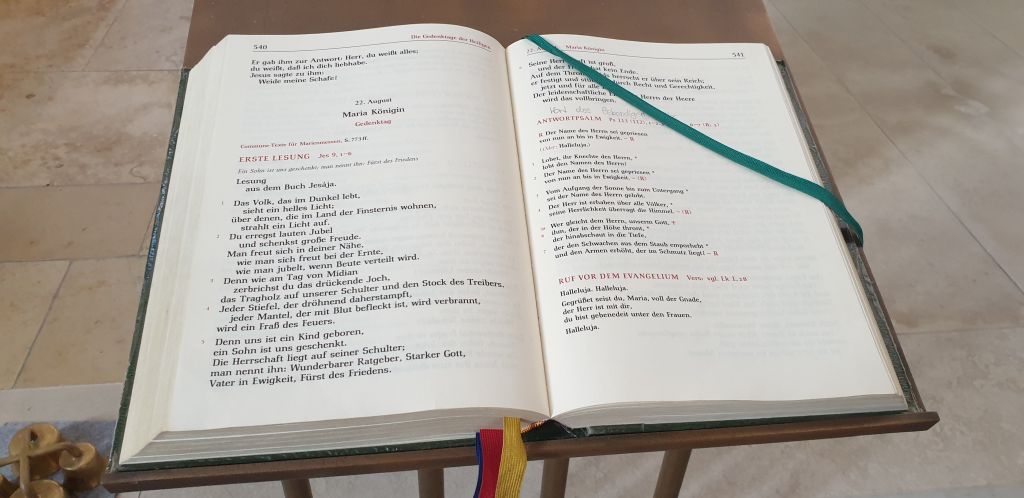 540
Die Gedenktage der Heiligen
Er gab ihm zur Antwort: Herr, du weißt alles;
du weißt, daß ich dich liebhabe.
Jesus sagte zu ihm:
Weide meine Schafe!
22. August
Maria Königin
Gedenktag
Commune-Texte für Marienmessen, S. 773 ff.
ERSTE LESUNG Jes 9, 1–6
Ein Sohn ist uns geschenkt; man nennt ihn: Fürst des Friedens
Lesung
aus dem Buch Jesája.
1 Das Volk, das im Dunkel lebt,
sieht ein helles Licht;
über denen, die im Land der Finsternis wohnen,
strahlt ein Licht auf.
2 Du erregst lauten Jubel
und schenkst große Freude.
Man freut sich in deiner Nähe,
wie man sich freut bei der Ernte,
wie man jubelt, wenn Beute verteilt wird.
3 Denn wie am Tag von Midian
zerbrichst du das drückende Joch,
das Tragholz auf unserer Schulter und den Stock des Treibers.
4 Jeder Stiefel, der dröhnend daherstampft,
jeder Mantel, der mit Blut befleckt ist, wird verbrannt,
wird ein Fraß des Feuers.
5 Denn uns ist ein Kind geboren,
ein Sohn ist uns geschenkt.
Die Herrschaft liegt auf seiner Schulter;
man nennt ihn: Wunderbarer Ratgeber, Starker Gott,
Vater in Ewigkeit, Fürst des Friedens.
22. Maria Königin
541
Seine ist groß,
und der hat kein Ende.
Auf dem Thron herrscht er über sein Reich;
er festigt und durch Recht und Gerechtigkeit,
jetzt und für alle
Der leidenschaftliche Herrn der Heere
wird das vollbringen.
Von des
ANTWORTPSALM Ps 113 (112),
R Der Name des Herrn sei gepriesen
von nun an bis in Ewigkeit. – R
(Oder: Halleluja.)
1 Lobet, ihr Knechte des Herrn, *
lobt den Namen des Herrn!
2 Der Name des Herrn sei gepriesen *
von nun an bis in Ewigkeit. – (R)
3 Vom Aufgang der Sonne bis zum Untergang *
sei der Name des Herrn gelobt.
4 Der Herr ist erhaben über alle Völker, *
seine Herrlichkeit überragt die Himmel. – (R)
Wer gleicht dem Herrn, unserm Gott, †
ihm, der in der Höhe thront, *
6 der hinabschaut in die Tiefe,
7 der den Schwachen aus dem Staub emporhebt *
und den Armen erhöht, der im Schmutz liegt? – R
RUF VOR DEM EVANGELIUM Vers: vgl. Lk 1, 28
Halleluja. Halleluja.
Gegrüßet seist du, Maria, voll der Gnade,
der Herr ist mit dir,
du bist gebenedeit unter den Frauen.
Halleluja.